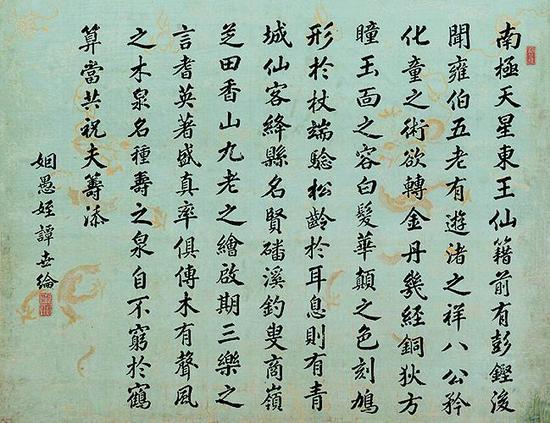 南極天星東王仙籍前有彭鏗後
聞雍伯五老有遊渚之祥八公矜
化童之術欲轉金丹幾經銅狄方
瞳玉面之容白髮華顛之色刻鳩
形於杖端騐松齡於耳息則有青
城仙客絳縣名賢磻溪釣叟商嶺
芝田香山九老之繪啟期三樂之
言耆英著盛真率俱傳木有聲風
之木泉名種壽之泉自不窮於鶴
算當共祝夫籌添
姻愚姪譚世綸